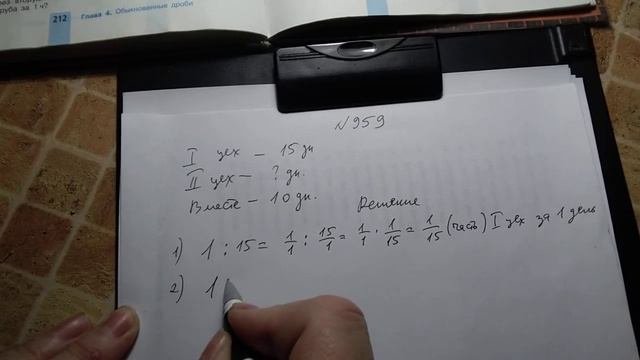 рез втору
руба за 1 ч?
212 Глава 4. Обыкновенные дроби
№959
I цех – 15 дн
II цех – ? дн.
Вместе – 10 дн.
Решение
1) 1 : 15 = 1/1 : 15/1 = 1/1 · 1/15 = 1/15 (часть) I цех за 1 день
2) 1